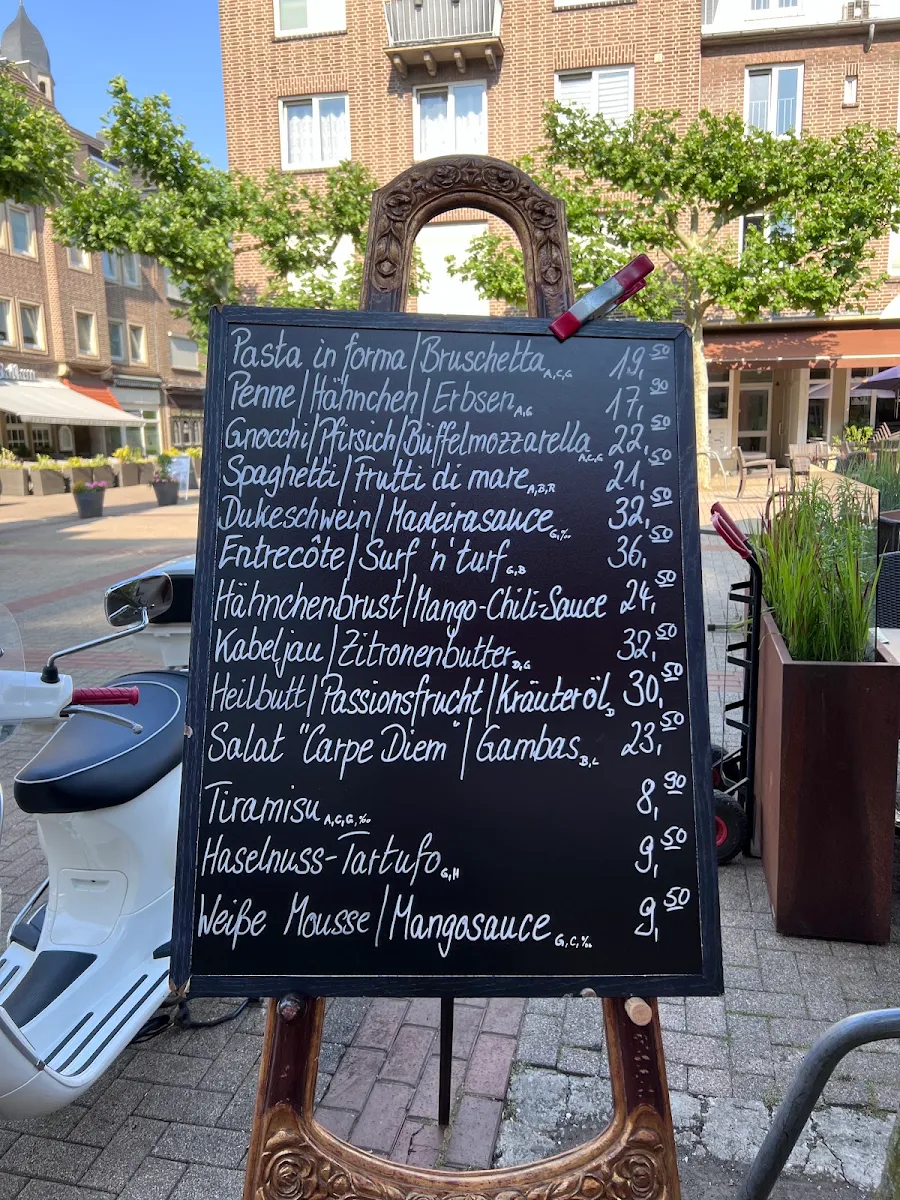 Pasta in forma|Bruschetta A,C,G 19,50
Penne|Hähnchen|Erbsen A,G 17,90
Gnocchi|Pfirsich|Büffelmozzarella A,C,G 22,50
Spaghetti|Frutti di mare A,B,R 21,50
Dukeschwein|Madeirasauce G,‰ 32,50
Entrecôte|Surf 'n' turf G,B 36,50
Hähnchenbrust|Mango-Chili-Sauce 24,50
Kabeljau|Zitronenbutter D,G 32,50
Heilbutt|Passionsfrucht|Kräuteröl D 30,50
Salat "Carpe Diem"|Gambas B,L 23,50
Tiramisu A,C,G,‰ 8,90
Haselnuss-Tartufo G,H 9,50
Weiße Mousse|Mangosauce G,C,‰ 9,50